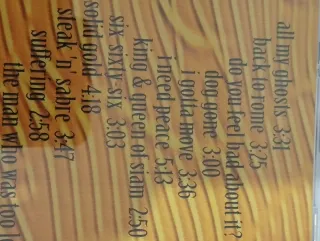 all my ghosts 3:31
back to rome 3:25
do you feel bad about it?
dog gone 3:40
i gotta move 3:36
i need peace 5:13
king & queen of siam 2:50
six sixty six 3:03
solid gold 4:18
steak 'n' sabre 3:47
suffering 2:58
the man who was too